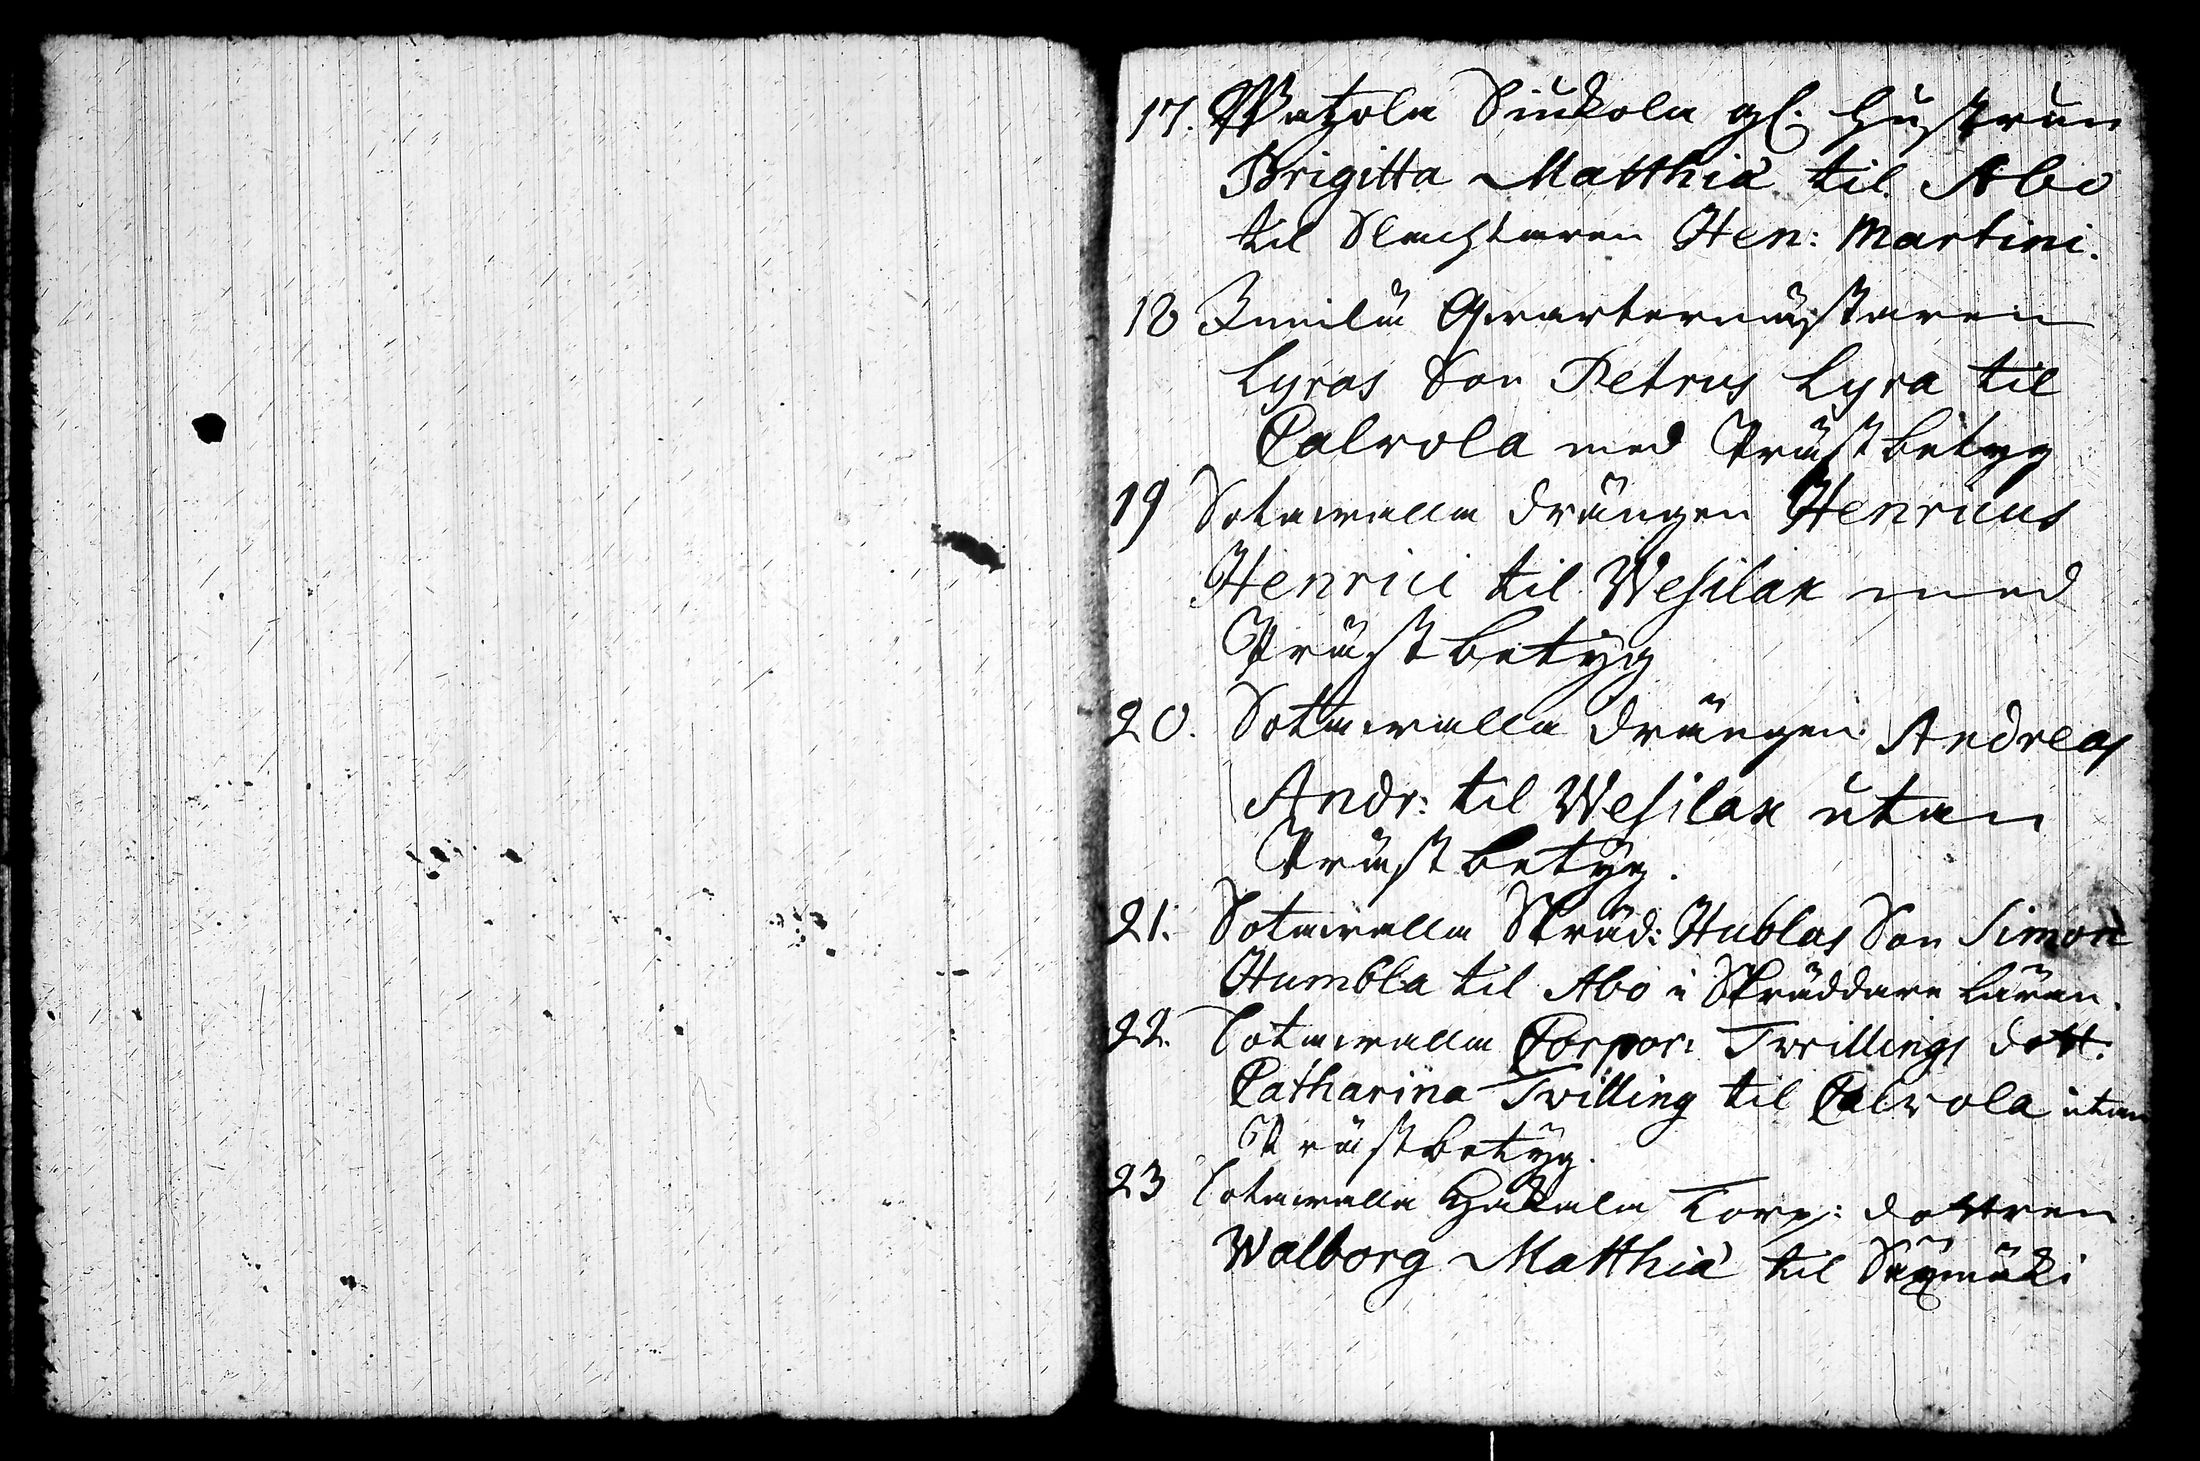 17. Matzola Siukola gl. Hustrun
Brigitta Matthiæ til Abo
til Slachtaren Hen: Martini.
18 Junnila Qvartermästaren
Lyras Son Petrus Lyra til
Calvola med Prästbetyg
19 Sotavalla Drängen Henricus
Henrici til Wesilax med
Prästbetyg
20. Sottavalla Drängen Andreas
Andr: til Wesilax utan
Prästbetyg.
21. Sotavalla Skräd: Hublas Son Simon
Humbla til Abo i Skräddare Läran.
22. Sotavalla Corpor: Twillings dott:
Catharina Twilling til Calvola utan
Prästbetyg.
23 Sotavalla Hakala Torp: dottren
Walborg Matthiæ til Säxmäki